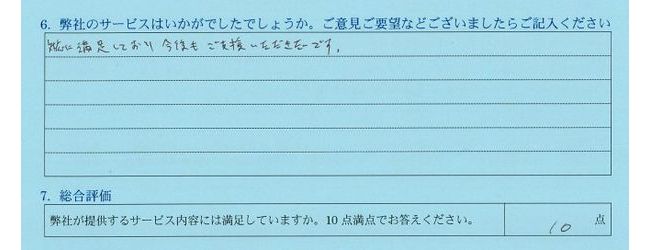 6. 弊社のサービスはいかがでしたでしょうか。ご意見ご要望などございましたらご記入ください
に満足しており 今後も ご支援いただきたいです。
7. 総合評価
弊社が提供するサービス内容には満足していますか。10点満点でお答えください。 10 点